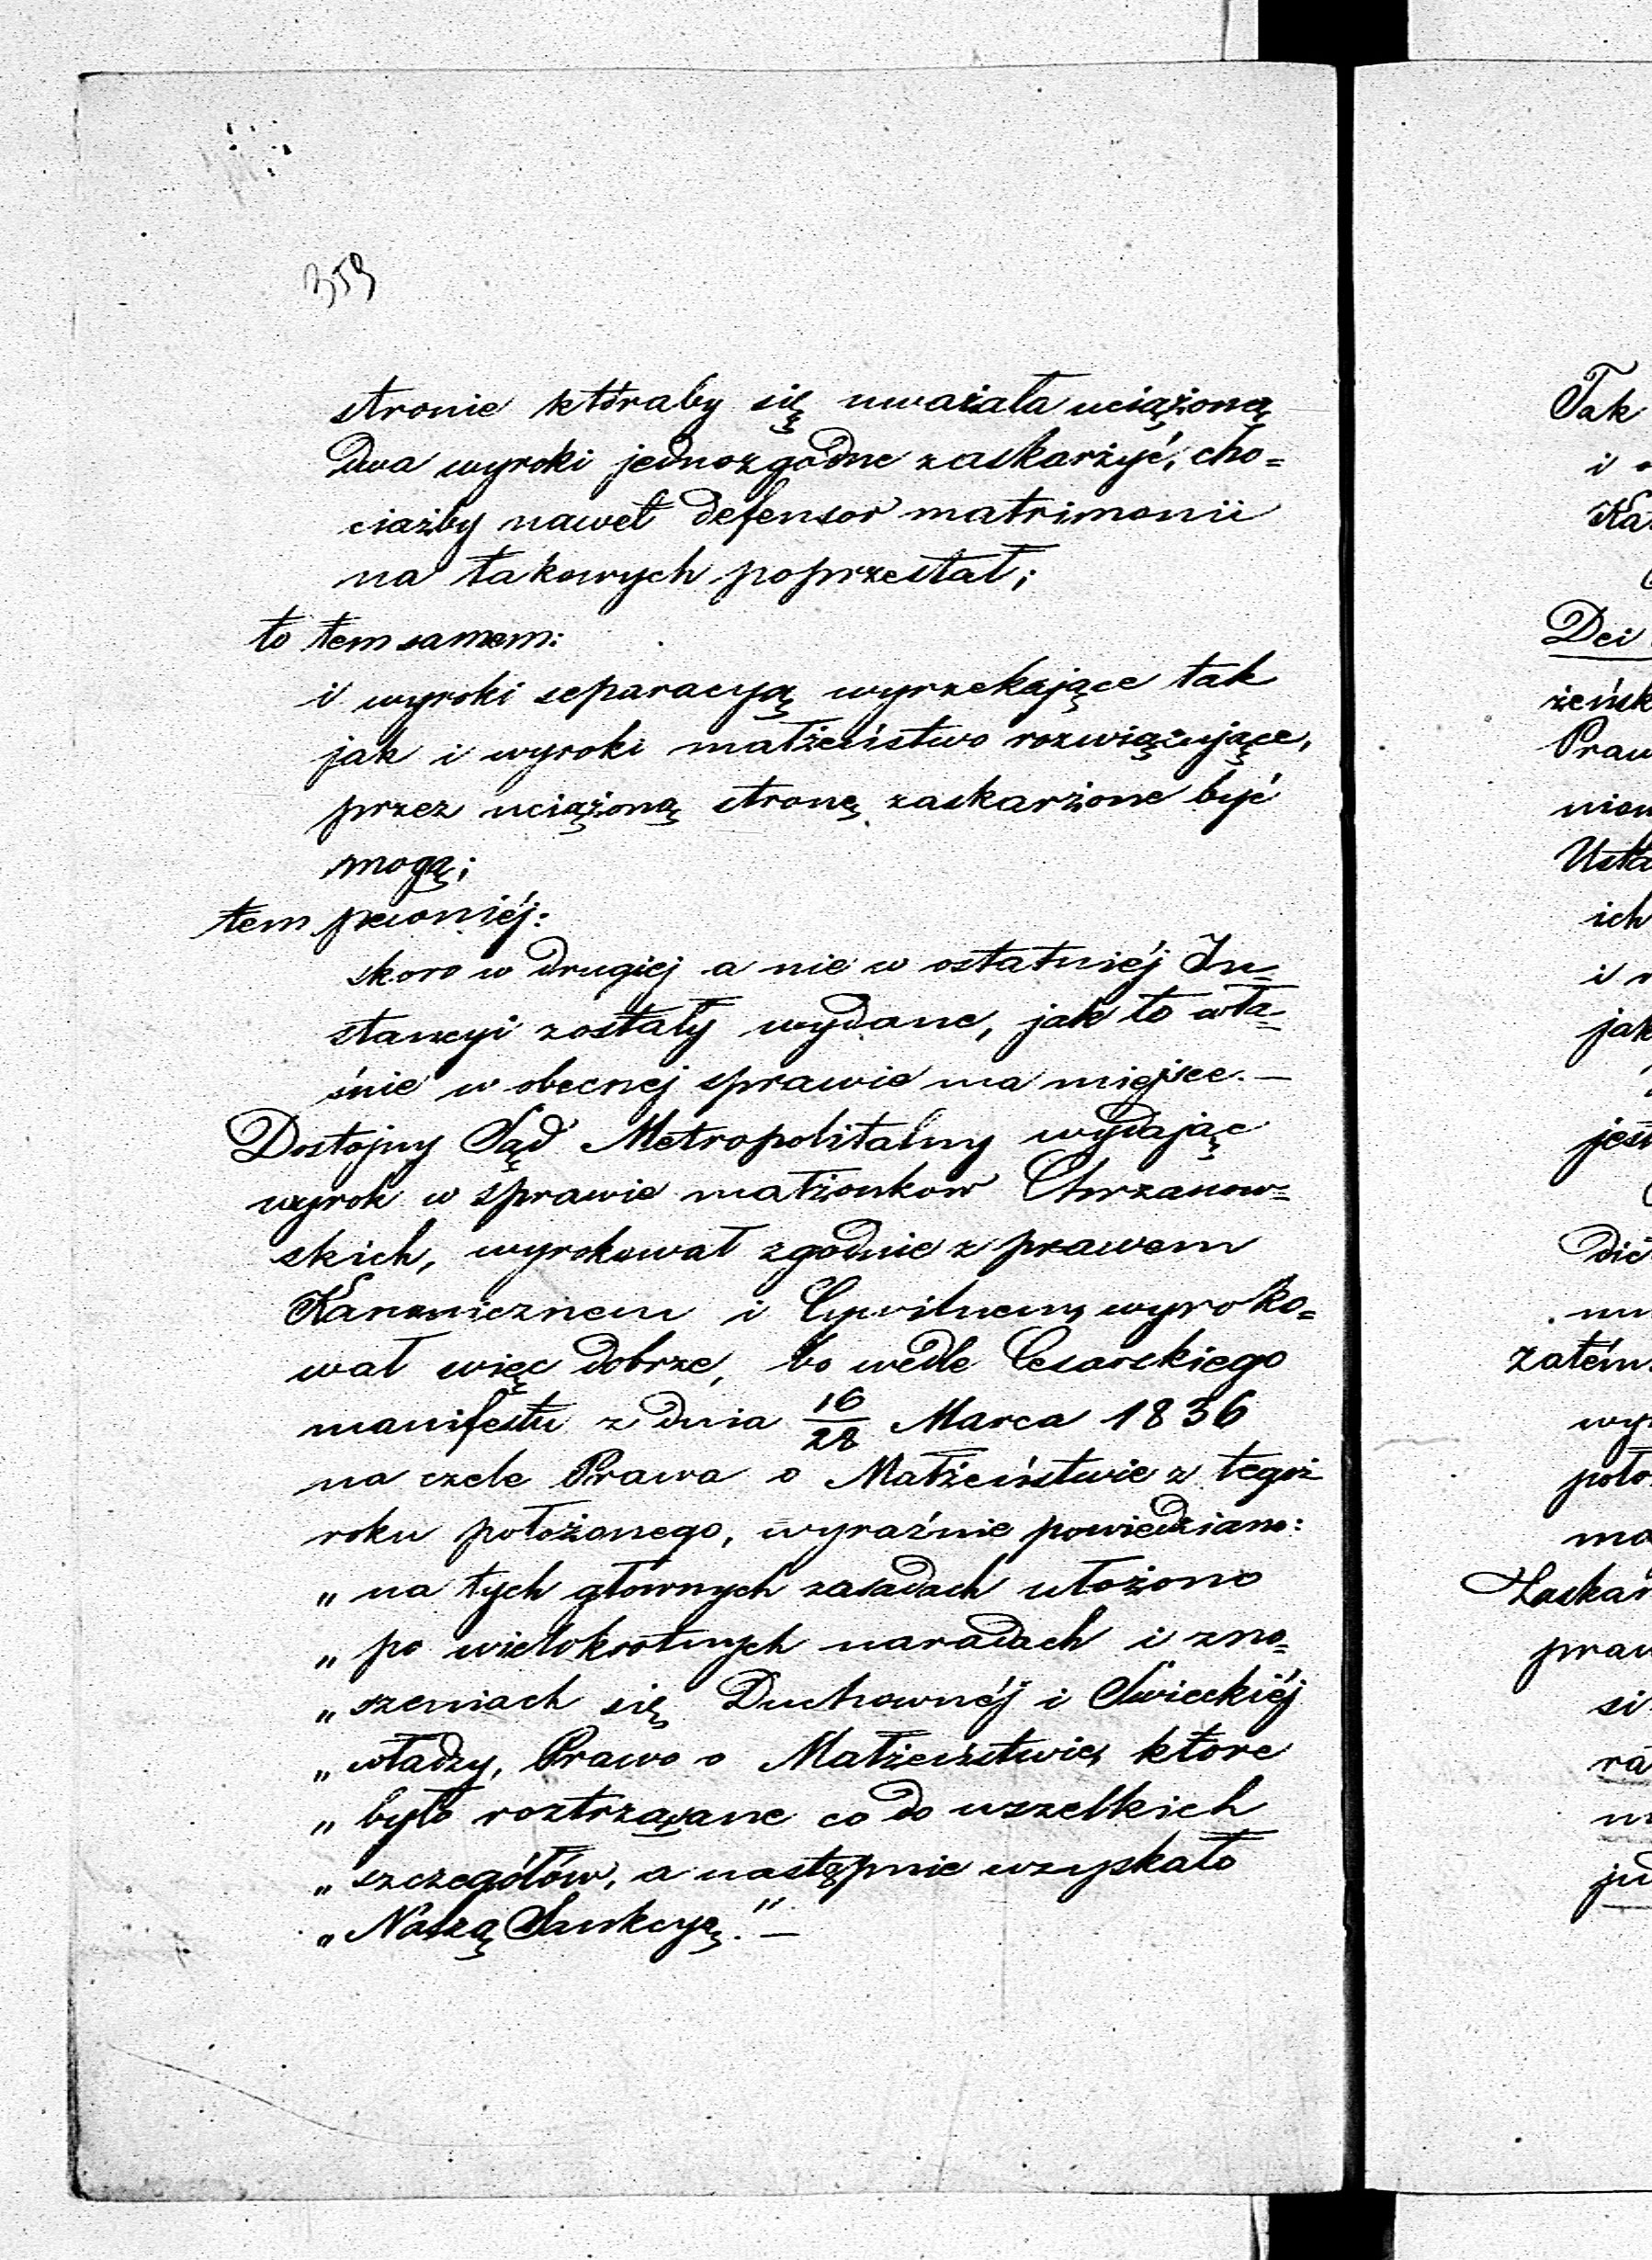 359
stronie któraby się uważała uciążoną
dwa wyroki jednozgodne zaskarżyć, cho=
ciażby nawet defensor matrimonii
na takowych poprzestał;
to tem samem:
i wyroki separacyą wyrzekające tak
jak i wyroki małżeństwo rozwiązujące,
przez uciążoną stronę zaskarżone być
mogą;
tem pewniéj:
skoro w drugiej a nie w ostatniéj In=
stancyi zostały wydane, jak to wła=
śnie w obecnej sprawie ma miejsce.—
Dostojny Sąd Metropolitalny wydając
wyrok w sprawie małżonkow Chrzanow=
skich, wyrokował zgodnie z prawem
Kanonicznem i Cywilnem, wyroko=
wał więc dobrze, bo wedle Cesarskiego
manifestu z dnia 16/28 Marca 1836
na czele Prawa o Małżeństwie z tegoż
roku położonego, wyraźnie powiedziano:
„ na tych głownych zasadach ułożono
„ po wielokrotnych naradach i zno=
„ szeniach się Duchownéj i Swieckiéj
„ władzy, Prawo o Małżeństwie, ktore
„ było roztrząsane co do wszelkich
„ szczegółów, a następnie wzyskało
„ Naszą Sankcyą." —
Tak
i
Dei
żeńsk
Praw
Usta
ich
i
jak
jest
zatém
wy
poło
Zaskar
praw
si
ra